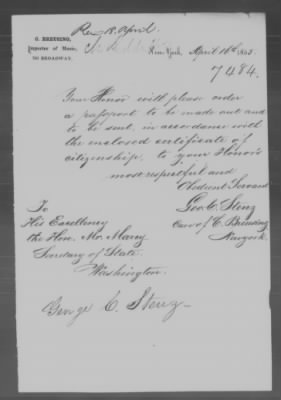 Rec 18. April.
C. BREUSING,
Importer of Music,
701 BROADWAY.
New York, April 16th, 1853.
7484.
Your Honor will please order
a passport to be made out and
to be sent, in accordance with
the enclosed certificate of
citizenship, to your Honor's
most respectful and
Obedient Servant
To
Geo. C. Stenz
His Excellency
Care of C. Breusing
the Hon. Mr. Marcy
Newyork.
Secretary of State.
Washington.
George C. Stenz